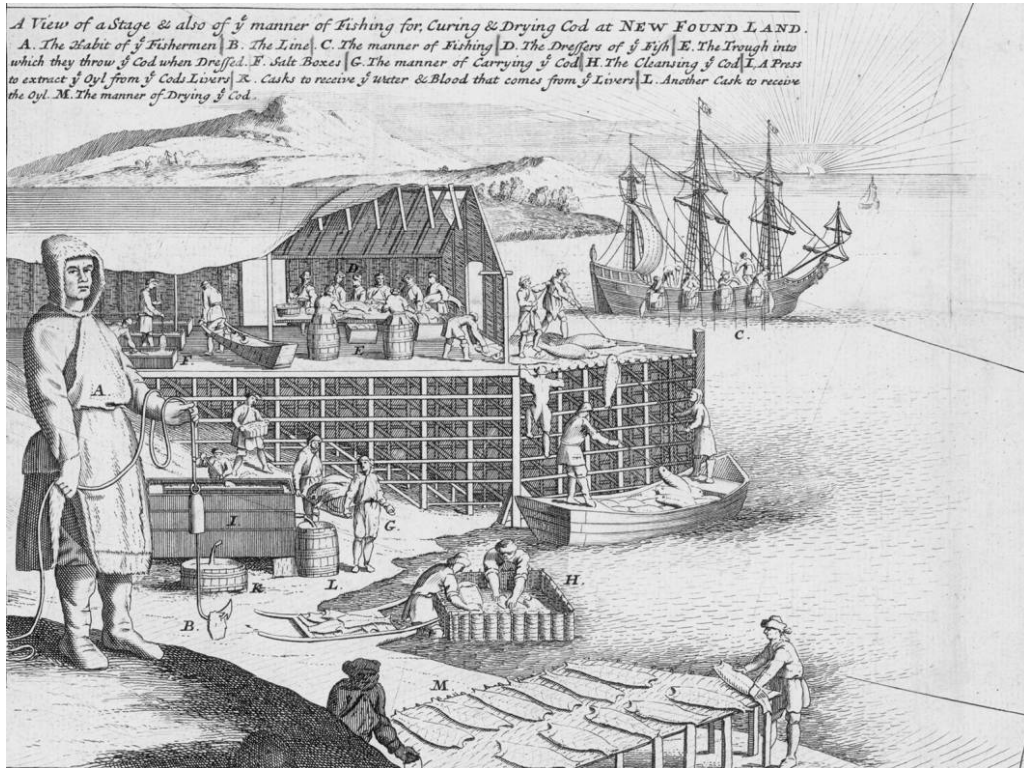 A View of a Stage & also of yͤ manner of Fishing for, Curing & Drying Cod at NEW FOUND LAND.
A. The Habit of yͤ Fishermen | B. The Line | C. The manner of Fishing | D. The Dressers of yͤ Fish | E. The Trough into
which they throw yͤ Cod when Dressed. F. Salt Boxes | G. The manner of Carrying yͤ Cod | H. The Cleansing yͤ Cod | I. A Press
to extract yͤ Oyl from yͤ Cods Livers | K. Casks to receive yͤ Water & Blood that comes from yͤ Livers | L. Another Cask to receive
the Oyl. M. The manner of Drying yͤ Cod.
D
C.
F
E
A.
I
G.
K
L
H.
B.
M